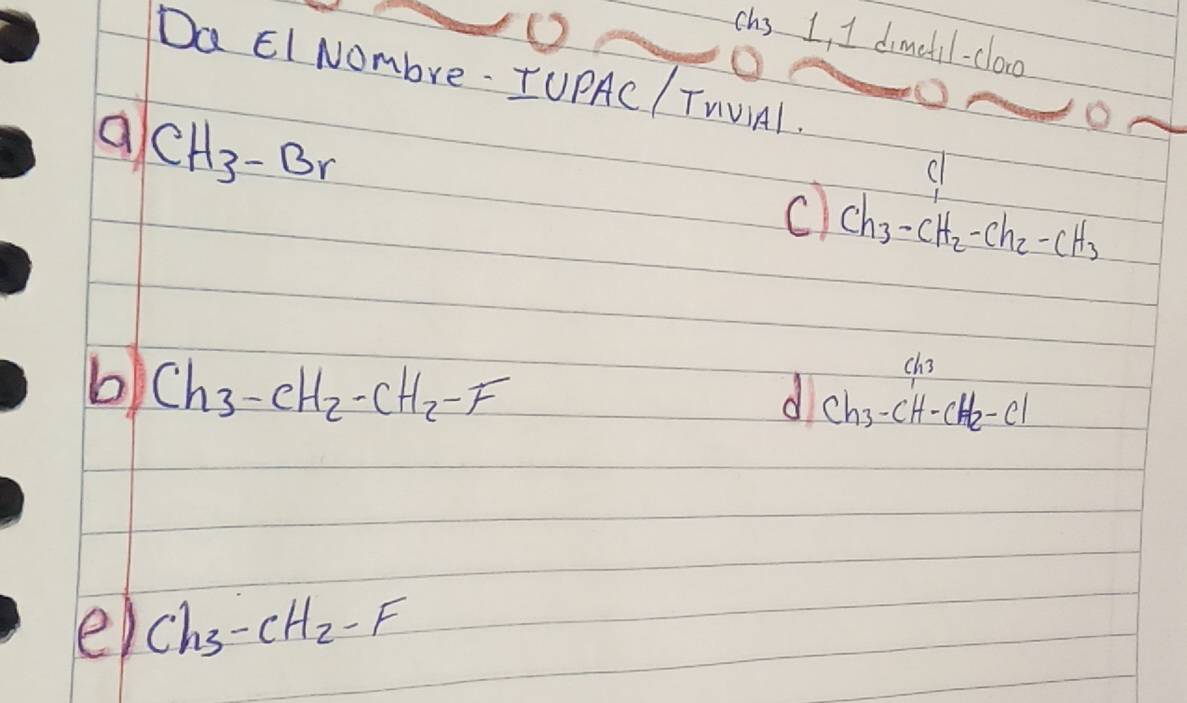 Ch3 1,1 dimetil-cloro
Da El Nombre - IUPAC/Trivial.
a) CH3-Br
Cl
c) Ch3-CH2-Ch2-CH3
b) Ch3-CH2-CH2-F
Ch3
d) Ch3-CH-CH2-Cl
e) Ch3-CH2-F